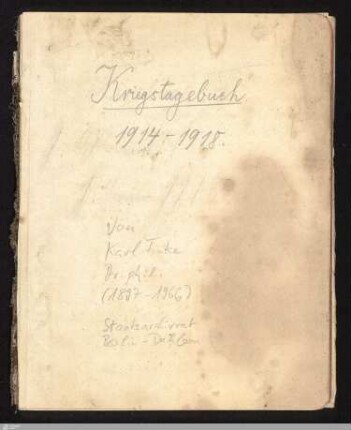 Kriegstagebuch
1914-1918.
Von
Karl
Dr. phil.
(1897-1966)
Staatsarchivrat
Berlin-Dahlem